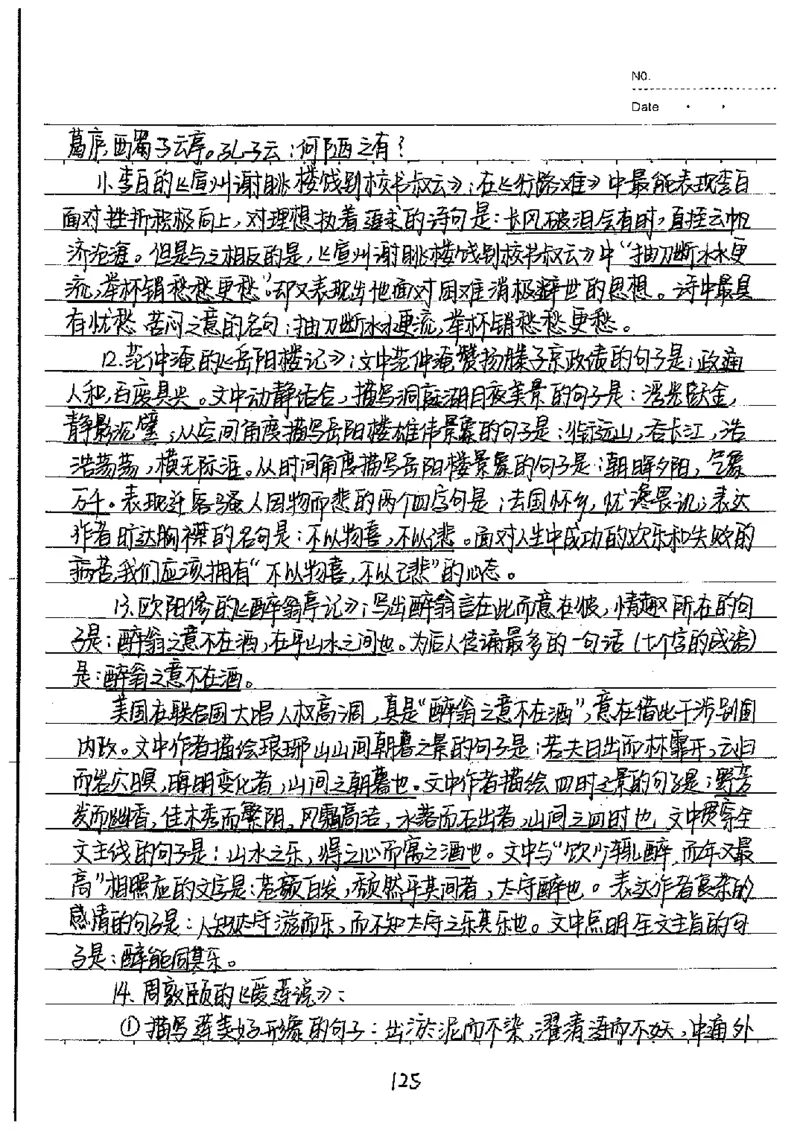 No.
Date
葛庐,西蜀子云亭。孔子云:何陋之有?
11.李白的《宣州谢朓楼饯别校书叔云》:在《行路难》中最能表现李白
面对挫折积极向上,对理想执着追求的诗句是:长风破浪会有时,直挂云帆
济沧海。但是与之相反的是,《宣州谢朓楼饯别校书叔云》中“抽刀断水水更
流,举杯销愁愁更愁”却又表现出他面对困难消极避世的思想。诗中最具
有忧愁苦闷之意的名句:抽刀断水水更流,举杯销愁愁更愁。
12.范仲淹的《岳阳楼记》:文中范仲淹赞扬滕子京政绩的句子是:政通
人和,百废具兴。文中动静结合,描写洞庭湖月夜美景的句子是:浮光跃金,
静影沉璧;从空间角度描写岳阳楼雄伟景象的句子是:衔远山,吞长江,浩
浩荡荡,横无际涯。从时间角度描写岳阳楼景象的句子是:朝晖夕阴,气象
万千。表现迁客骚人因物而悲的两个四字句是:去国怀乡,忧谗畏讥;表达
作者旷达胸襟的名句是:不以物喜,不以己悲。面对人生中成功的欢乐和失败的
痛苦,我们应该拥有“不以物喜,不以己悲”的心态。
13.欧阳修的《醉翁亭记》:写出醉翁言在此而意在彼,情趣所在的句
子是:醉翁之意不在酒,在乎山水之间也。为后人传诵最多的一句话(七个字的成语)
是:醉翁之意不在酒。
美国在联合国大唱人权高调,真是“醉翁之意不在酒”,意在借此干涉别国
内政。文中作者描绘琅琊山山间朝暮之景的句子是:若夫日出而林霏开,云归
而岩穴暝,晦明变化者,山间之朝暮也。文中作者描绘四时之景的句子是:野芳
发而幽香,佳木秀而繁阴,风霜高洁,水落而石出者,山间之四时也。文中贯穿全
文主线的句子是:山水之乐,得之心而寓之酒也。文中与“饮少辄醉,而年又最
高”相照应的文字是:苍颜白发,颓然乎其间者,太守醉也。表达作者复杂的
感情的句子是:人知从太守游而乐,而不知太守之乐其乐也。文中点明全文主旨的句
子是:醉能同其乐。
14.周敦颐的《爱莲说》:
①描写莲美好形象的句子:出淤泥而不染,濯清涟而不妖,中通外
125